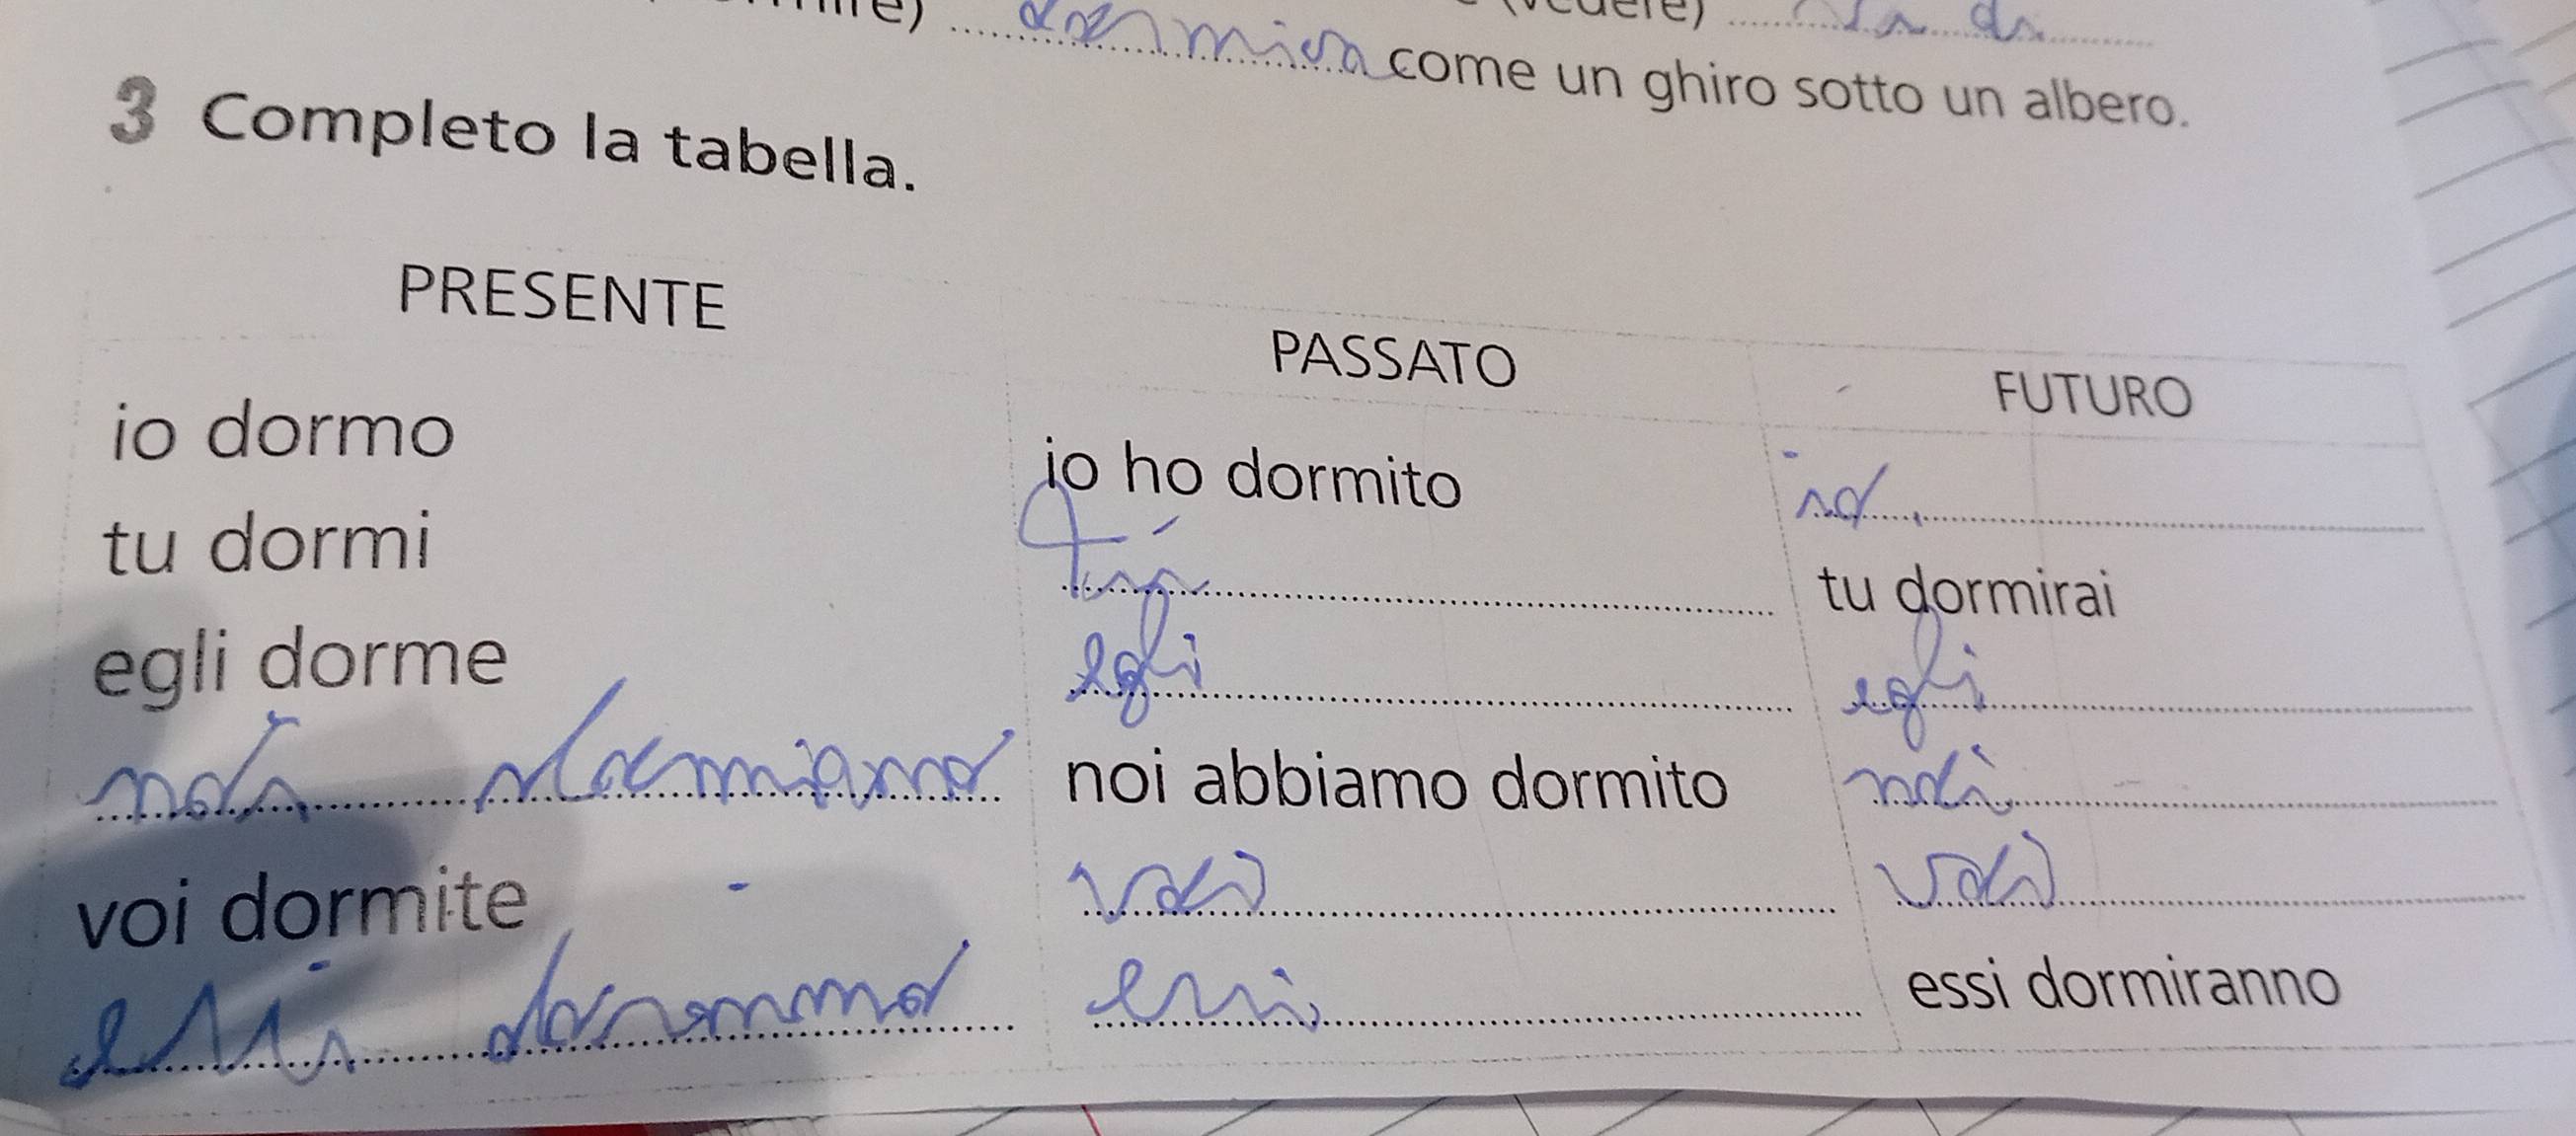 dormirà come un ghiro sotto un albero.
3 Completo la tabella.
PRESENTE PASSATO FUTURO
io dormo io ho dormito io
tu dormi tu tu dormirai
egli dorme egli egli
noi dormiamo noi abbiamo dormito noi
voi dormite voi voi
essi dormono essi essi dormiranno